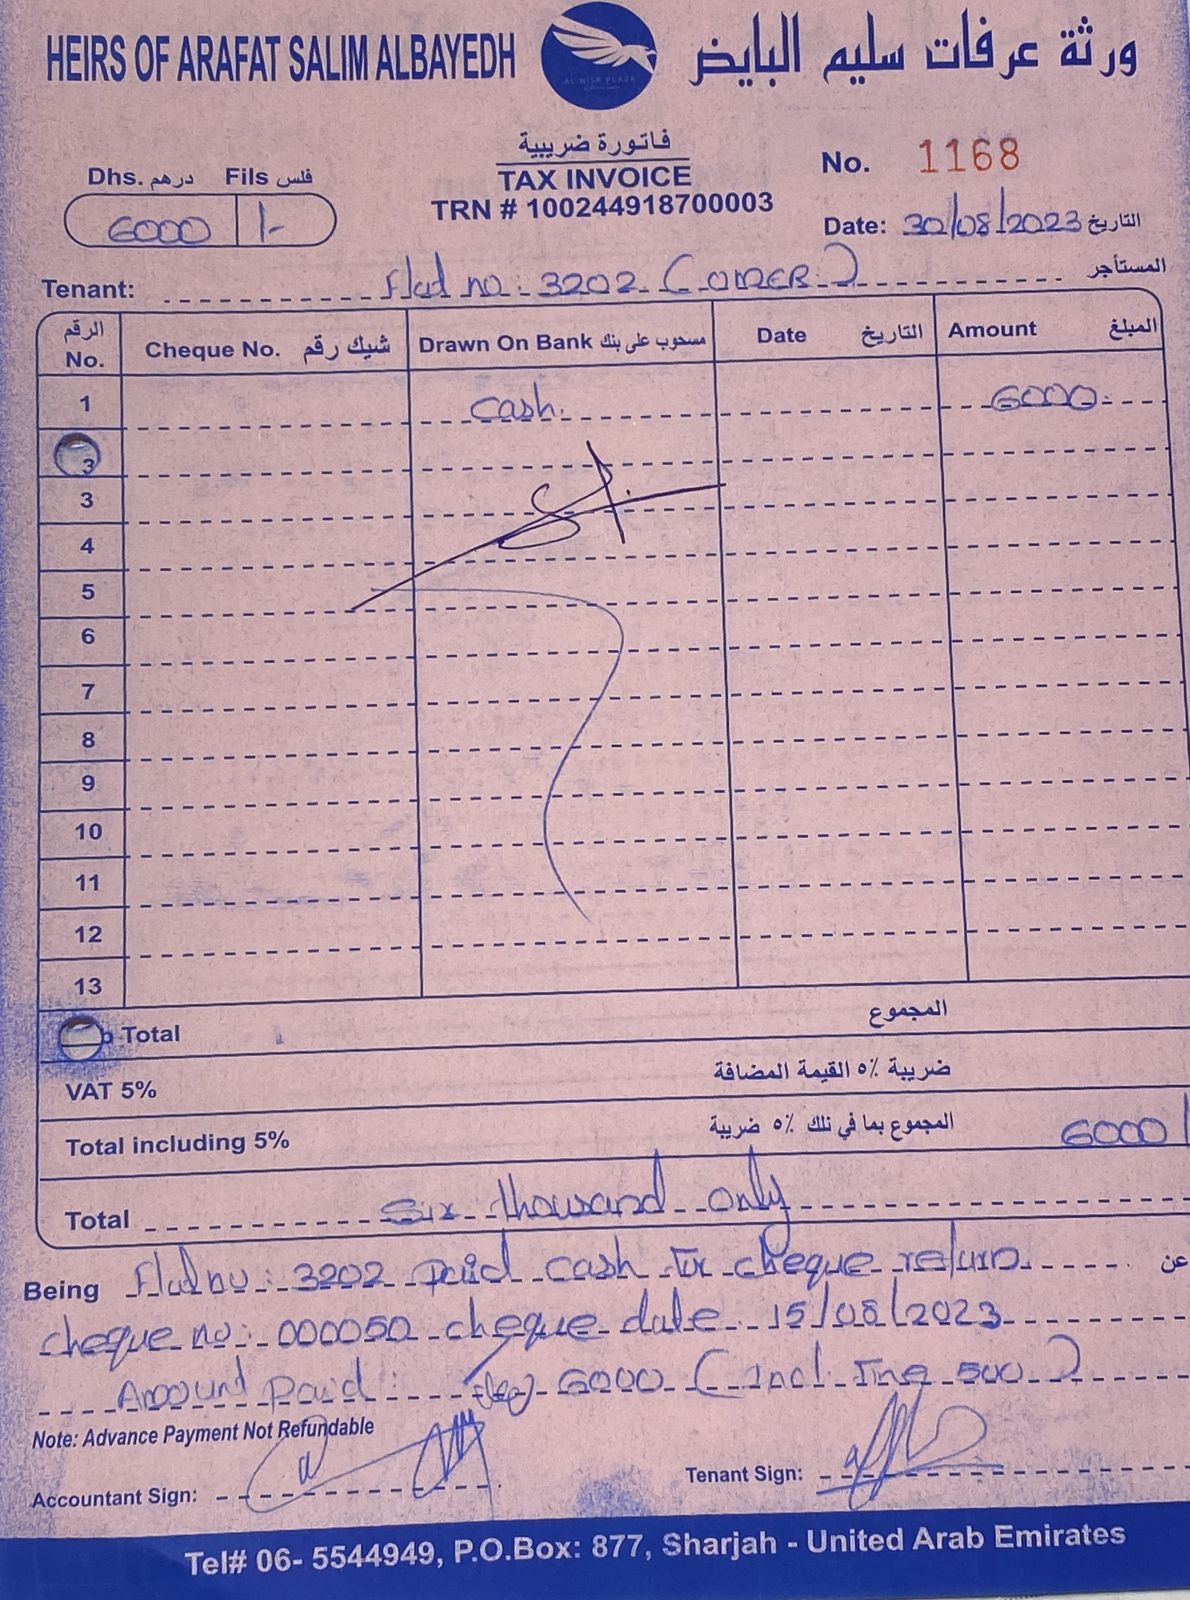 HEIRS OF ARAFAT SALIM ALBAYEDH
AL NISR PLAZA
ورثة عرفات سليم البايض
فاتورة ضريبية
TAX INVOICE
TRN # 100244918700003
No. 1168
Dhs. درهم Fils فلس
6000 /-
Date: 30/08/2023 التاريخ
Tenant: Flat no: 3202 (OMER) المستأجر
الرقم No. Cheque No. شيك رقم Drawn On Bank مسحوب على بنك Date التاريخ Amount المبلغ
1 Cash. 6000
3
3
4
5
6
7
8
9
10
11
12
13
Total المجموع
VAT 5% ضريبة ٥٪ القيمة المضافة
Total including 5% المجموع بما في نلك ٥٪ ضريبة 6000/
Total Six thousand only
Being Flat no: 3202 paid cash for cheque return عن
cheque no: 000050 cheque date 15/08/2023
Amount paid: 6000 (Incl. Fine 500)
Note: Advance Payment Not Refundable
Accountant Sign:
Tenant Sign:
Tel# 06- 5544949, P.O.Box: 877, Sharjah - United Arab Emirates